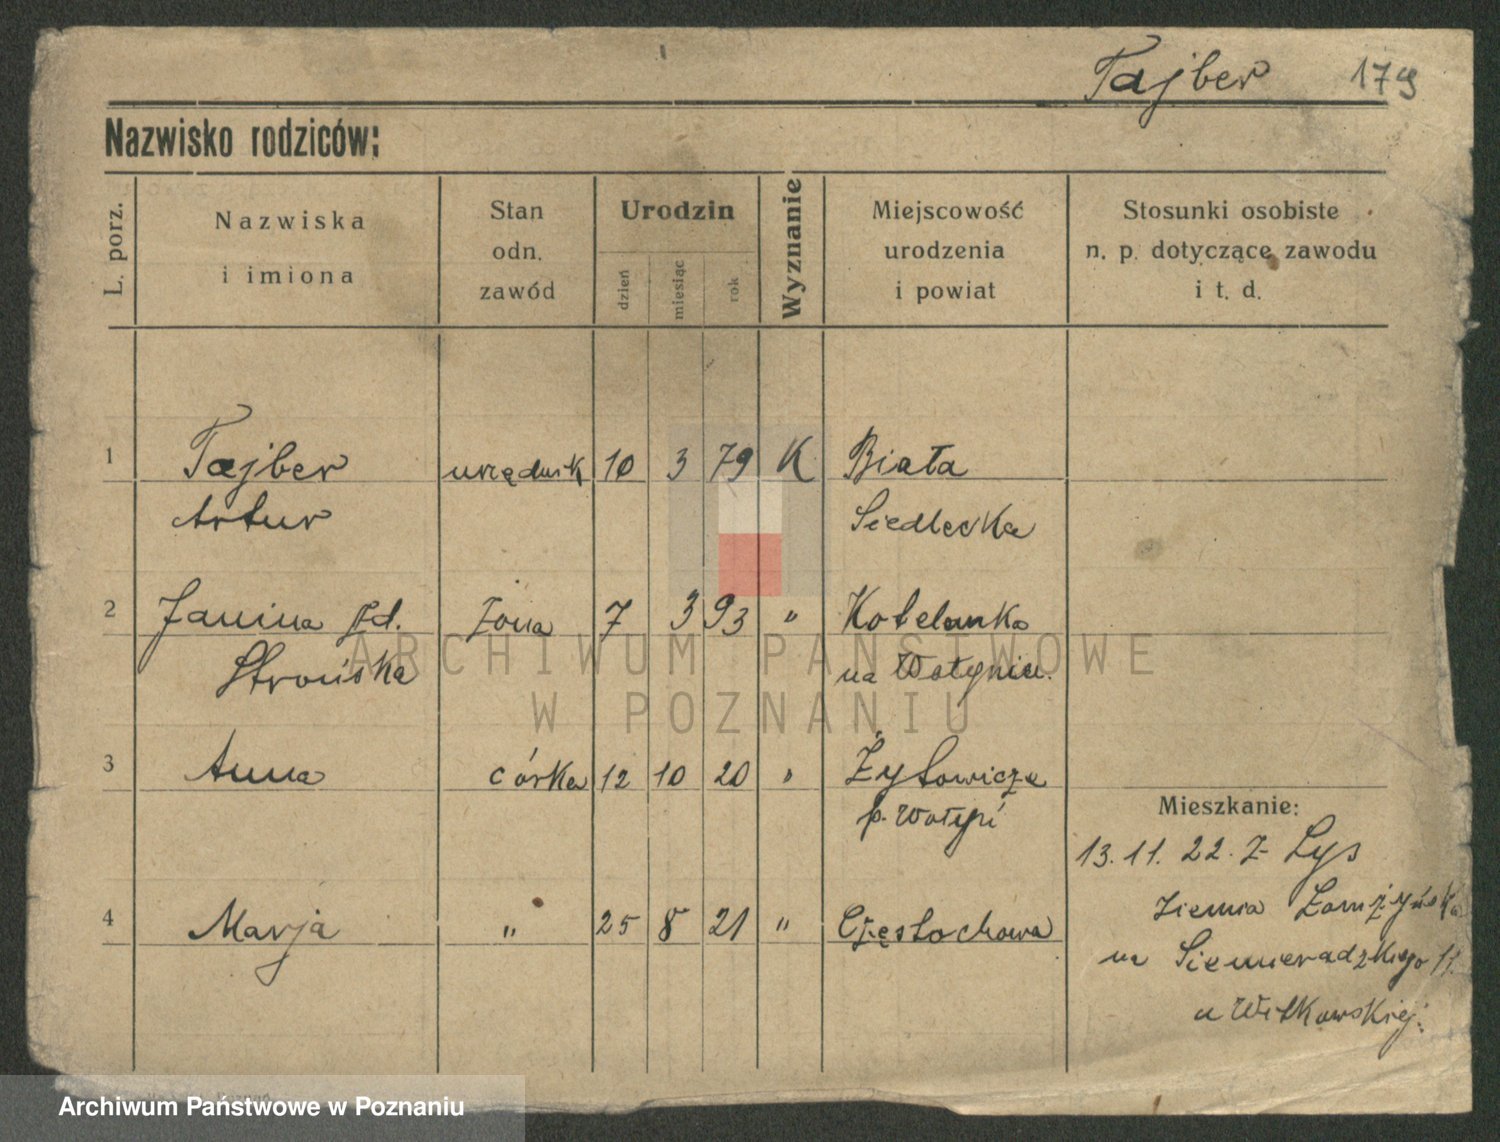 Tajber 179
Nazwisko rodziców:
L. porz.
Nazwiska
i imiona
Stan
odn.
zawód
Urodzin
dzień
miesiąc
rok
Wyznanie
Miejscowość
urodzenia
i powiat
Stosunki osobiste
n. p. dotyczące zawodu
i t. d.
1 Tajber urzędnik 10 3 79 K Biała
Artur Siedlecka
2 Janina żona 7 3 93 "
Strońska na Wołyniu.
3 Anna córka 12 10 20 "
p. Wołyń
Mieszkanie:
13.11.22. Z Lys
4 Marja " 25 8 21 " Częstochowa
ziemia Łomżyńska
na Siemieradzkiego 11
u Witkowskiej.
ARCHIWUM PAŃSTWOWE
W POZNANIU
Archiwum Państwowe w Poznaniu